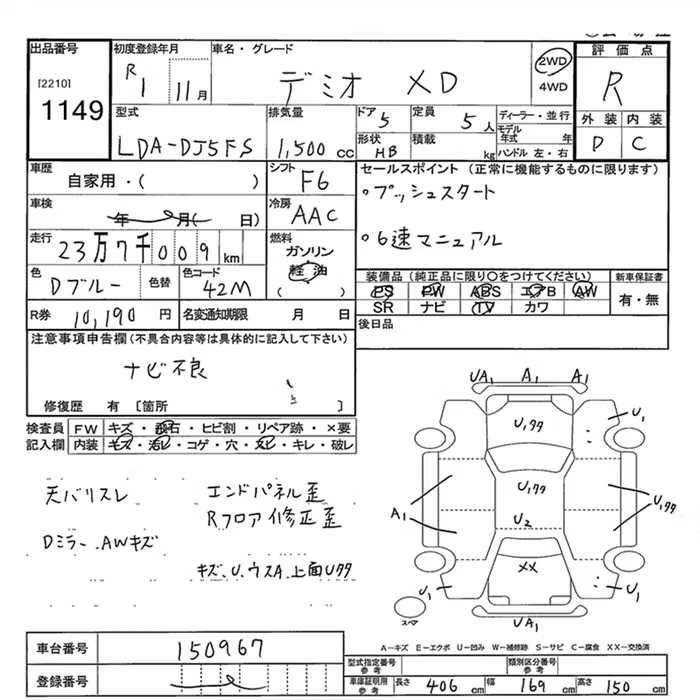 出品番号 初度登録年月 車名・グレード 評価点
[2210] R1 11月 デミオ XD 2WD R
1149 4WD
型式 排気量 ドア 定員 ディーラー・並行 外装 内装
LDA-DJ5FS 1,500cc 5 5人 モデル年式 年 D C
形状 HB 積載 kg ハンドル 左・右
車歴 シフト セールスポイント(正常に機能するものに限ります)
自家用・( ) F6 ○プッシュスタート
車検 冷房
年 月( 日) AAC ○6速マニュアル
走行 燃料
23万7千009km ガソリン
軽油
( )
色 色替 色コード 装備品(純正品に限り○をつけてください) 新車保証書
Dブルー 42M PS PW ABS エアB AW 有・無
SR ナビ TV カワ
R券 10,190円 名変通知期限 月 日 後日品
注意事項申告欄(不具合内容等は具体的に記入して下さい)
ナビ不良
修復歴 有 〔箇所 〕
検査員 FW キズ・飛石・ヒビ割・リペア跡・×要
記入欄 内装 キズ・汚レ・コゲ・穴・スレ・キレ・破レ
天バリスレ エンドパネル歪
Rフロア修正歪
Dミラー.AWキズ
キズ、U、ウスA、上面Uタタ
UA1 A1 A1
U1
U1タタ
U1タタ
U1タタ
A1
U2
XX
U1 U1
スペア
UA1
車台番号 150967
A−キズ E−エクボ U−凹み W−補修跡 S−サビ C−腐食 XX−交換済
登録番号
型式指定番号参考 類別区分番号参考
車庫証明用参考 長さ 406cm 幅 169cm 高さ 150cm